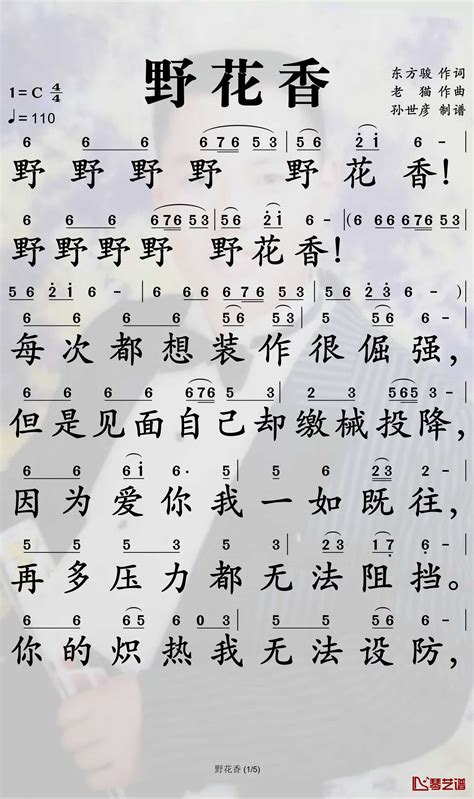 野花香
1=C 4/4
♩=110
东方骏 作词
老 猫 作曲
孙世彦 制谱
6 6 6 6 6 676 53 | 56 2i 6 - |
野 野 野 野 野 花 香!
6 6 6 6 676 53 | 56 2i 6 - | (6 66 676 53 |
野野野野 野花香!
56 2i 6 - | 6 66 676 53 | 56 23 6 - ) |
6 6 6 3 5 5 3 5 5 - |
每次都想装作很倔强,
6 6 6 6 676 5 3 2 3 565 3 |
但是见面自己却缴械投降,
6 6 6i 6· 5 5 6 23 2 - |
因为爱你我一如既往,
5 5 5 3 5 53 2 3 17 6 - |
再多压力都无法阻挡。
6 6 6 65 0 3 5 3 5 5 - |
你的炽热我无法设防,
野花香 (1/5)
琴艺谱